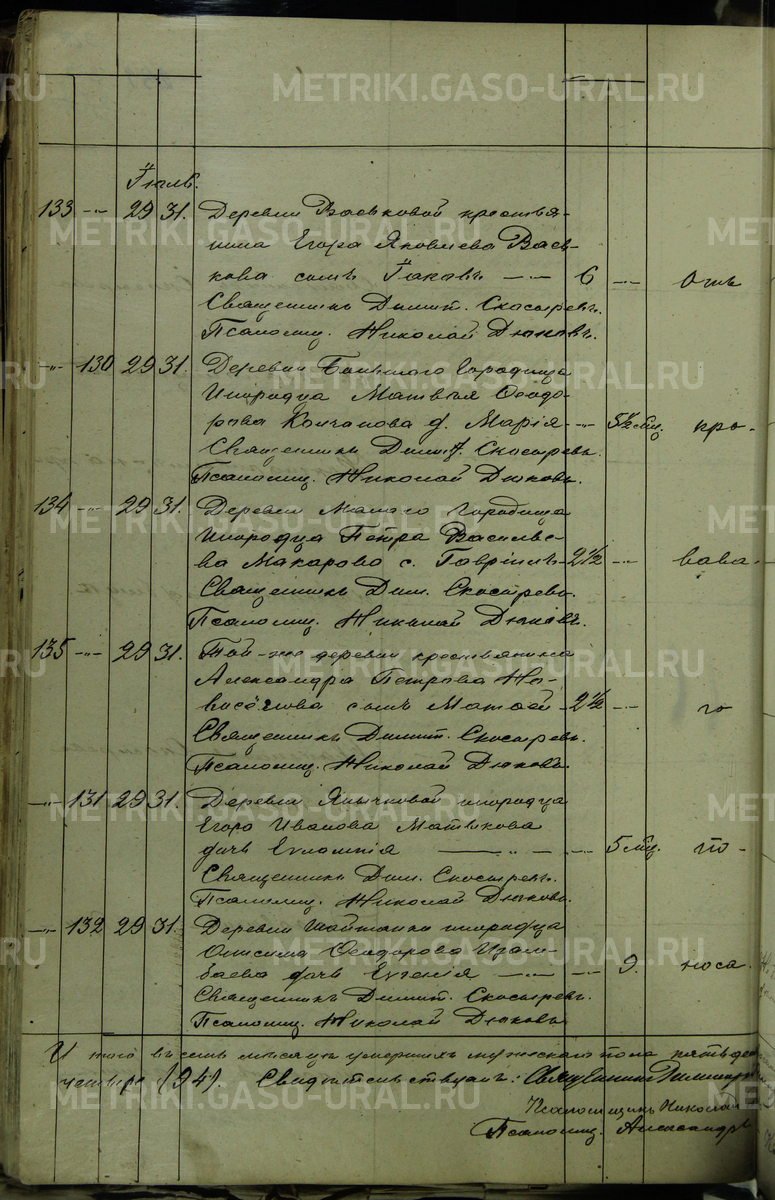 METRIKI.GASO-URAL.RU
Іюль.
133 -"- 29 31. Деревни Васьковой крестья-
нина Егора Яковлева Вась-
кова сынъ Іаковъ 6 -"- Отъ
Священникъ Димит. Скосыревъ.
Псаломщ. Николай Дюковъ.
-"- 130 29 31. Деревни Большого Городища
Инородца Матвѣя Ѳеодо-
рова д. Марія -"- 5½ мѣс. кро-
Священникъ Димит. Скосыревъ.
Псаломщ. Николай Дюковъ.
134 -"- 29 31. Деревни Малого Городища
Инородца Петра Василье-
ва Макарова с. Гавріилъ 2½ -"- вава-
Священникъ Дим. Скосыревъ.
Псаломщ. Николай Дюковъ.
135 -"- 29 31. Той-же деревни крестьянина
Александра Петрова Но-
сынъ Матѳей 2½ -"- го
Священникъ Димит. Скосыревъ.
Псаломщ. Николай Дюковъ.
-"- 131 29 31. Деревни Язычковой инородца
Егора Иванова
дочь 5 мѣц. по-
Священникъ Дим. Скосыревъ.
Псаломщ. Николай Дюковъ.
-"- 132 29 31. Деревни Шайтанки инородца
Онисима Ѳеодорова Изам-
баева дочь Евгенія -"- 9. носа.
Священникъ Димит. Скосыревъ.
Псаломщ. Николай Дюковъ.
Итого въ семъ мѣсяцѣ умершихъ мужескаго пола
четыре (54). Свидѣтельствуемъ: Священникъ
Псаломщикъ Николай
Псаломщ. Александръ